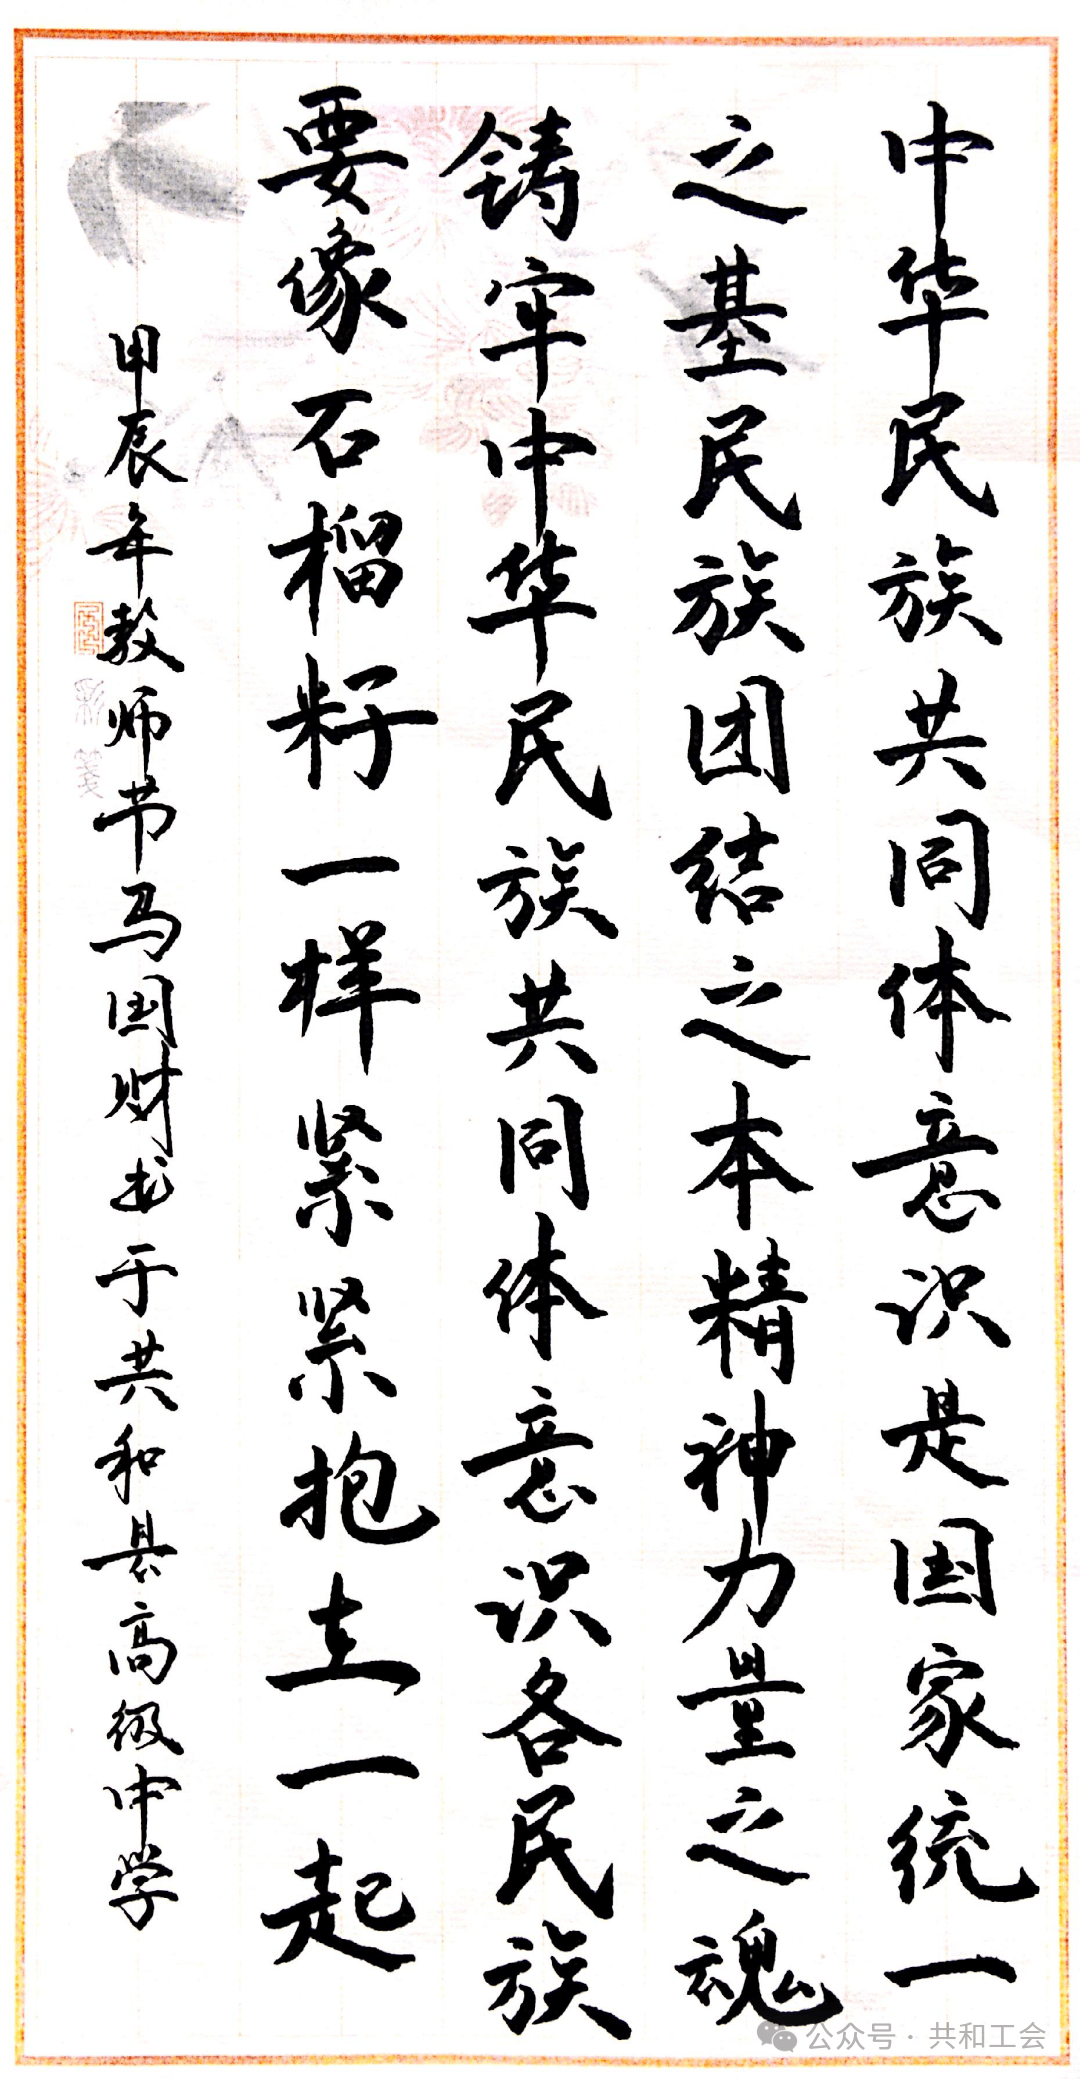 中华民族共同体意识是国家统一
之基民族团结之本精神力量之魂
铸牢中华民族共同体意识各民族
要像石榴籽一样紧紧抱在一起
甲辰年教师节马国财书于共和县高级中学
彩笺
公众号·共和工会